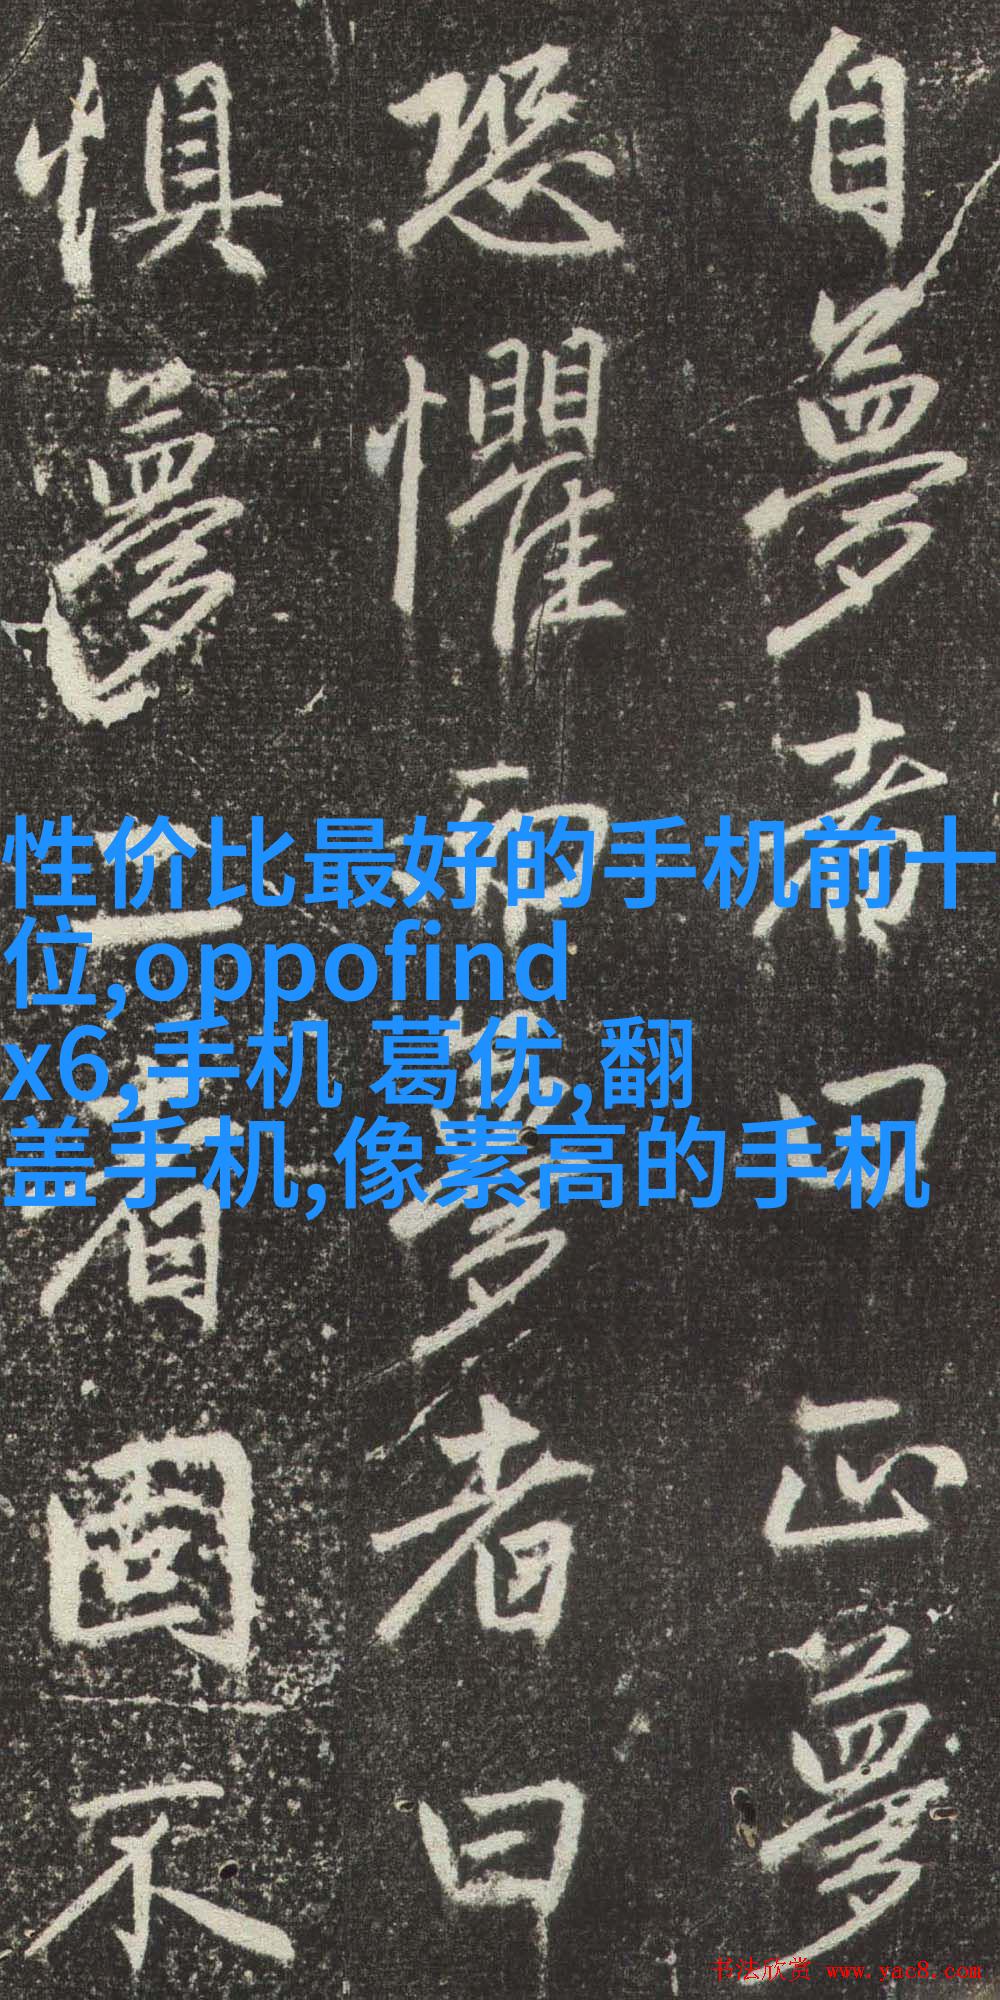 自夢者曰正夢
恐懼而夢者曰
惧夢者固不
性价比最好的手机前十
位,oppofind
x6,手机 葛优,翻
盖手机,像素高的手机
书法欣赏 www.yac8.com